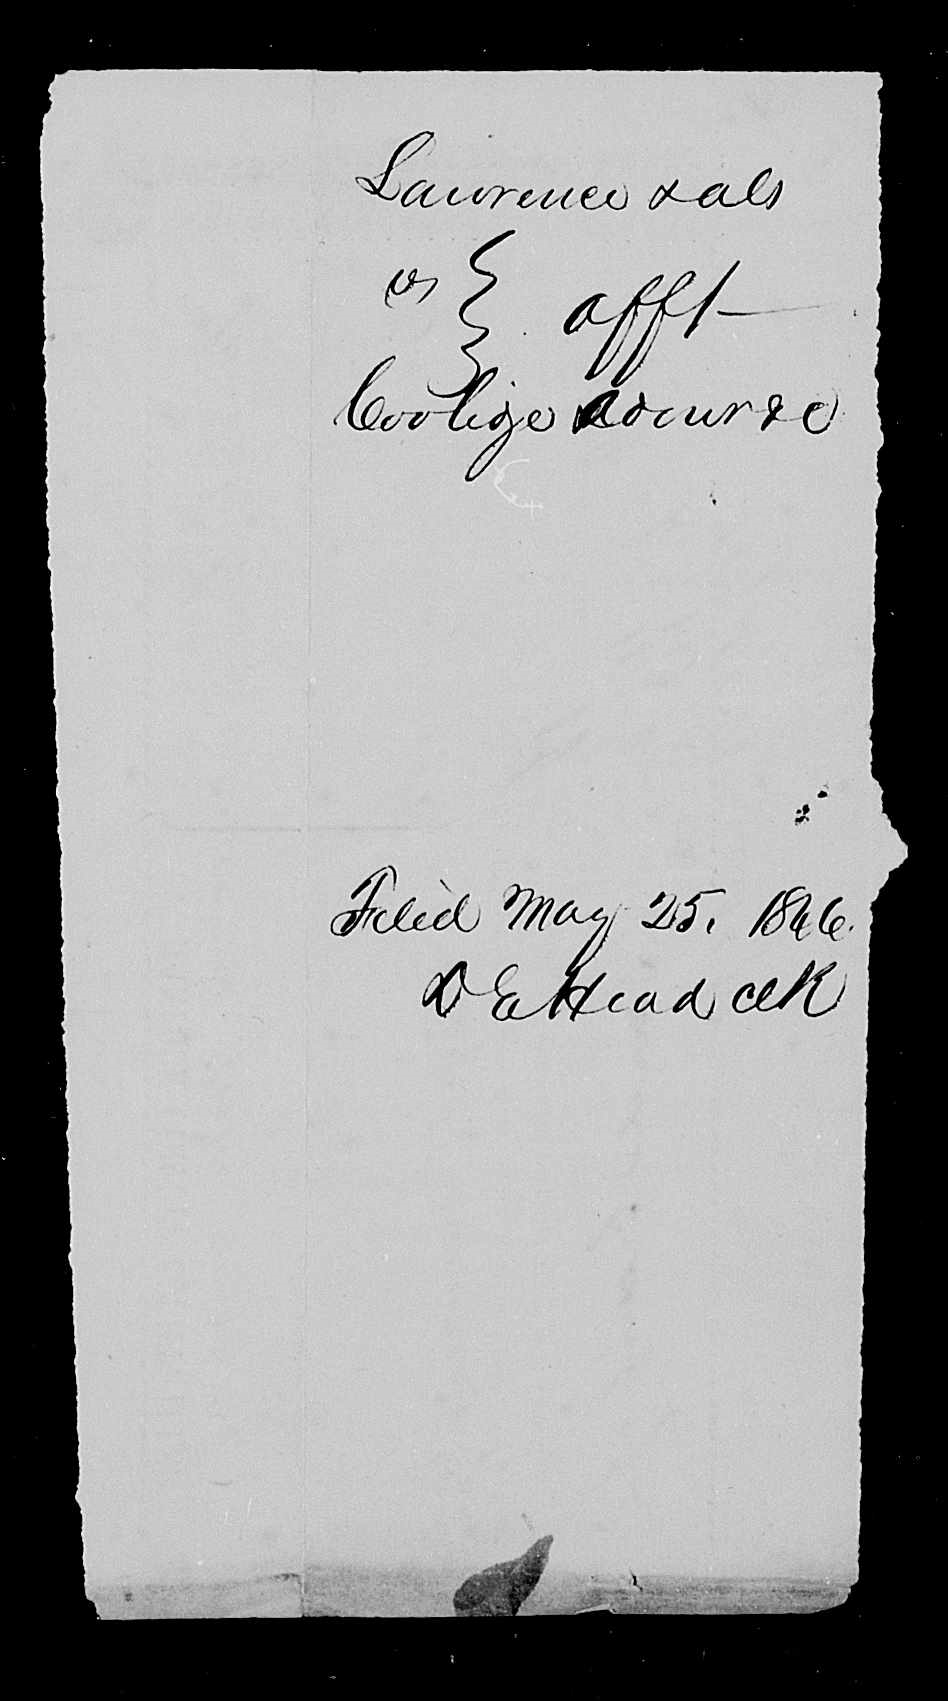 Lawrence & als
vs } afft
Coolige
Filed May 25, 1846.
D E Head clk